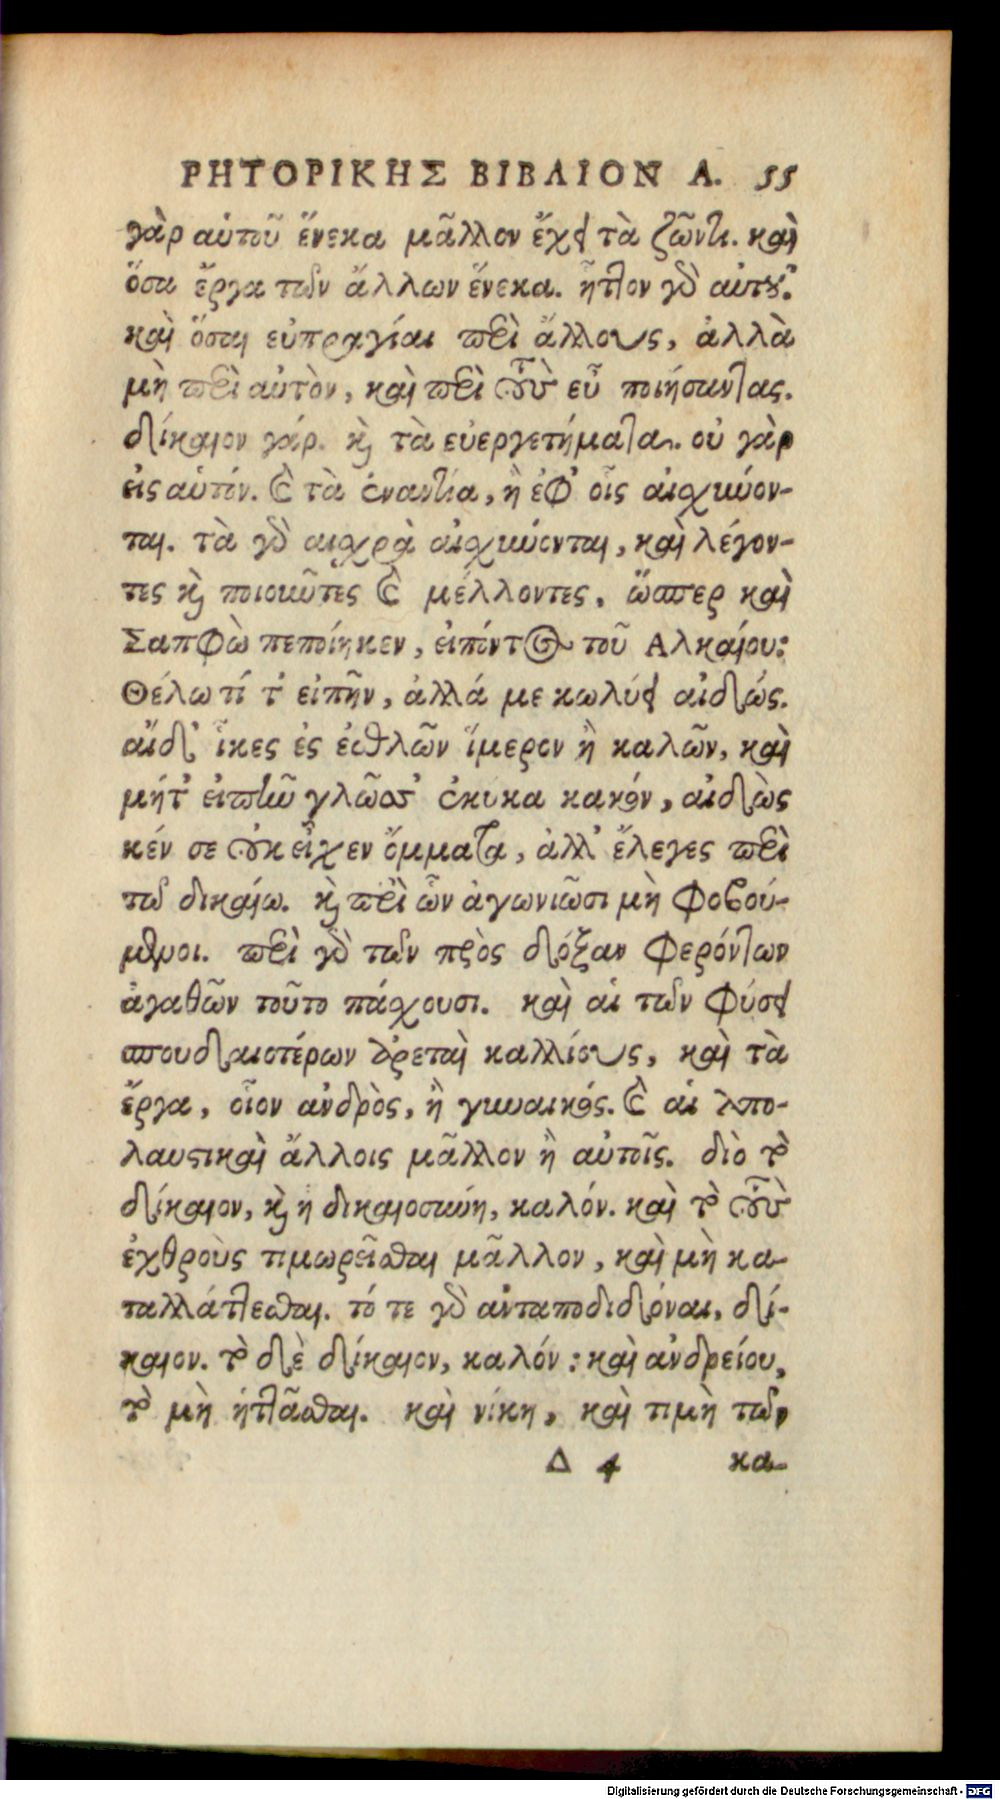 ΡΗΤΟΡΙΚΗΣ ΒΙΒΛΙΟΝ Α. 55
γὰρ αὑτοῦ ἕνεκα μᾶλλον ἔχει τὰ ζῶντι. καὶ
ὅσα ἔργα τῶν ἄλλων ἕνεκα. ἧττον γὸ αὑτοῦ.
καὶ ὅσαι εὐπραγίαι περὶ ἄλλους, ἀλλὰ
μὴ περὶ αὑτὸν, καὶ περὶ τοὺς εὖ ποιήσαντας.
δίκαιον γάρ. καὶ τὰ εὐεργετήματα. οὐ γὰρ
εἰς αὑτόν. καὶ τὰ ἐναντία, ἢ ἐφ' οἷς αἰσχύνον-
ται. τὰ γὸ αἰσχρὰ αἰσχύνονται, καὶ λέγον-
τες καὶ ποιοῦντες καὶ μέλλοντες. ὥσπερ καὶ
Σαπφὼ πεποίηκεν, εἰπόντος τοῦ Αλκαίου:
Θέλω τί τ' εἰπῆν, ἀλλά με κωλύει αἰδώς.
αἴδ' ἷκες ἐς ἐσθλῶν ἵμερον ἢ καλῶν, καὶ
μήτ' εἰπῆν γλῶσσ' ἐκύκα κακόν, αἰδὼς
κέν σε οὐκ εἶχεν ὄμματα, ἀλλ' ἔλεγες περὶ
τῶ δικαίω. καὶ περὶ ὧν ἀγωνιῶσι μὴ φοβού-
μενοι. περὶ γὸ τῶν πρὸς δόξαν φερόντων
ἀγαθῶν τοῦτο πάχουσι. καὶ αἱ τῶν φύσει
σπουδαιοτέρων ἀρεταὶ καλλίους, καὶ τὰ
ἔργα, οἷον ἀνδρὸς, ἢ γυναικός. καὶ αἱ ἀπο-
λαυστικαὶ ἄλλοις μᾶλλον ἢ αὐτοῖς. διὸ τὸ
δίκαιον, καὶ ἡ δικαιοσύνη, καλόν. καὶ τὸ τοὺς
ἐχθροὺς τιμωρεῖσθαι μᾶλλον, καὶ μὴ κα-
ταλλάττεσθαι. τό τε γὸ ἀνταποδιδόναι, δί-
καιον. τὸ δὲ δίκαιον, καλόν: καὶ ἀνδρείου,
τὸ μὴ ἡττᾶσθαι. καὶ νίκη, καὶ τιμὴ τῶν
Δ 4 κα-
Digitalisierung gefördert durch die Deutsche Forschungsgemeinschaft - DFG